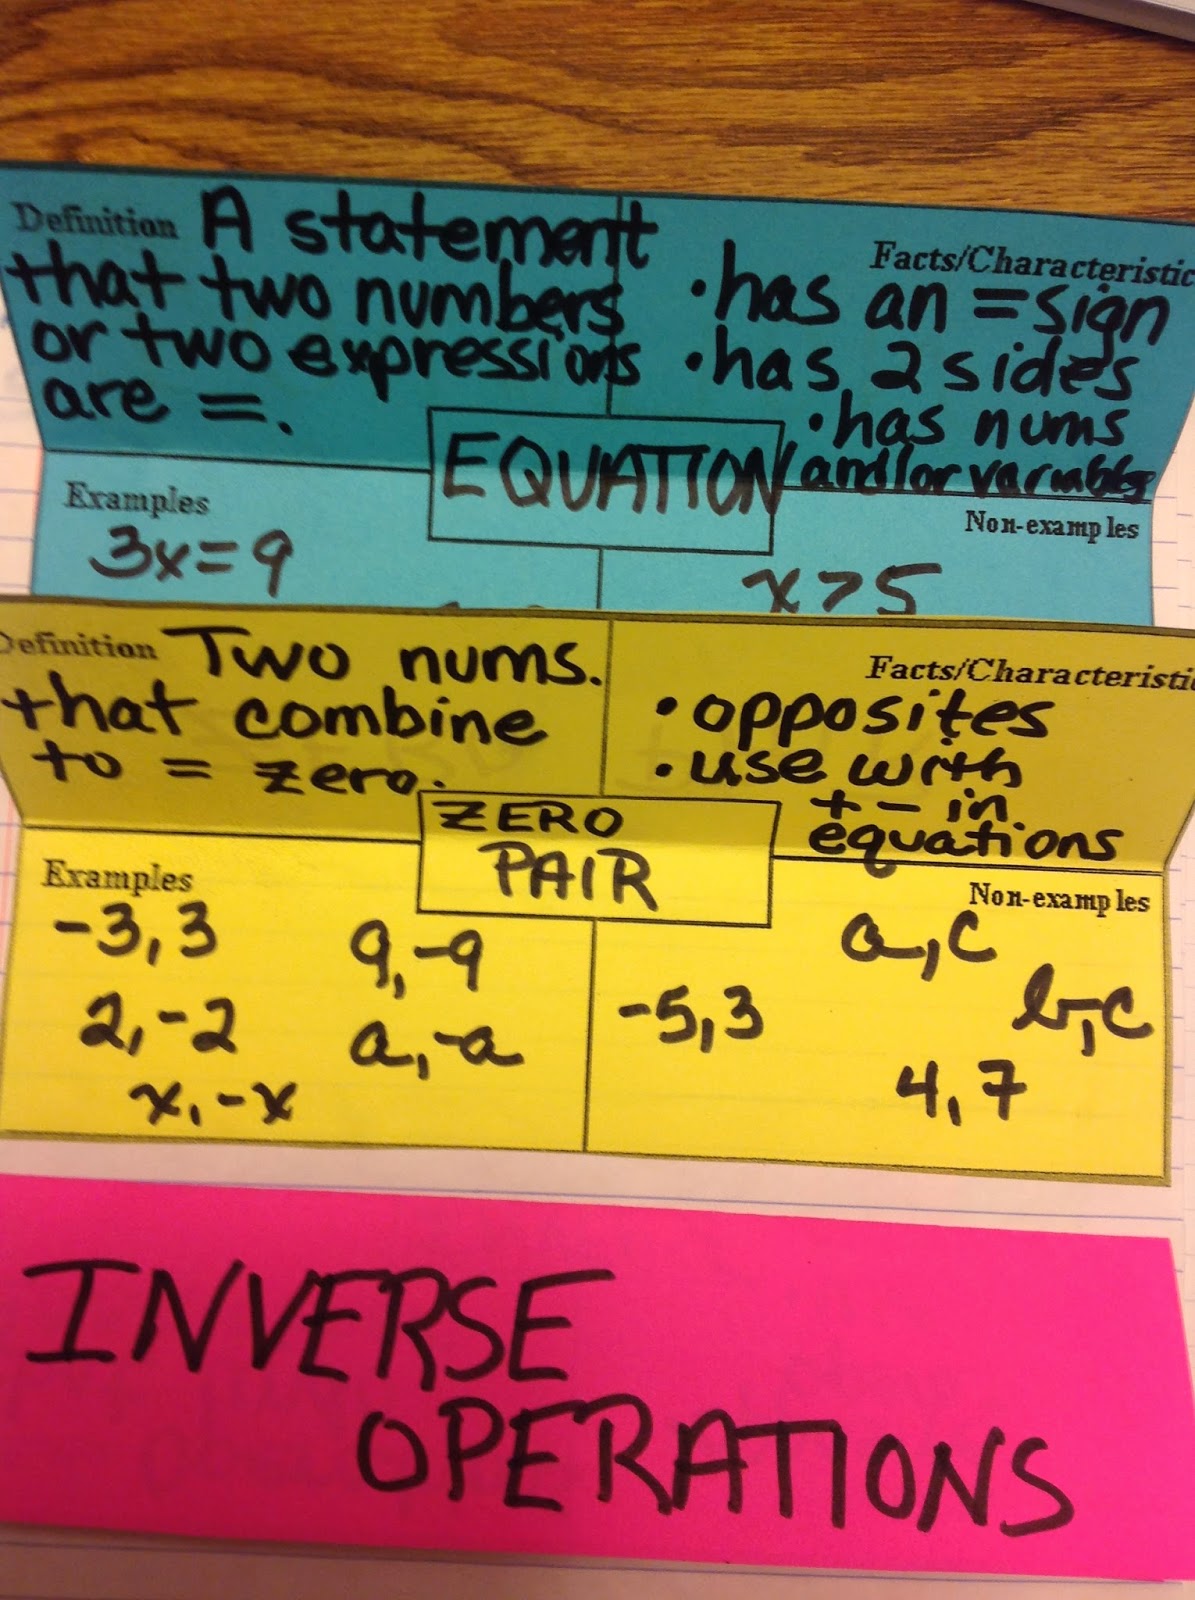 Definition A statement
that two numbers
or two expressions
are =.
Facts/Characteristic
• has an = sign
• has 2 sides
• has nums
and/or variables
EQUATION
Examples
3x=9
Non-examples
x>5
Definition Two nums.
that combine
to = zero.
Facts/Characteristic
• opposites
• use with
+ - in
equations
ZERO
PAIR
Examples
-3,3
9,-9
2,-2
a,-a
x,-x
Non-examples
a,c
-5,3
b,c
4,7
INVERSE
OPERATIONS